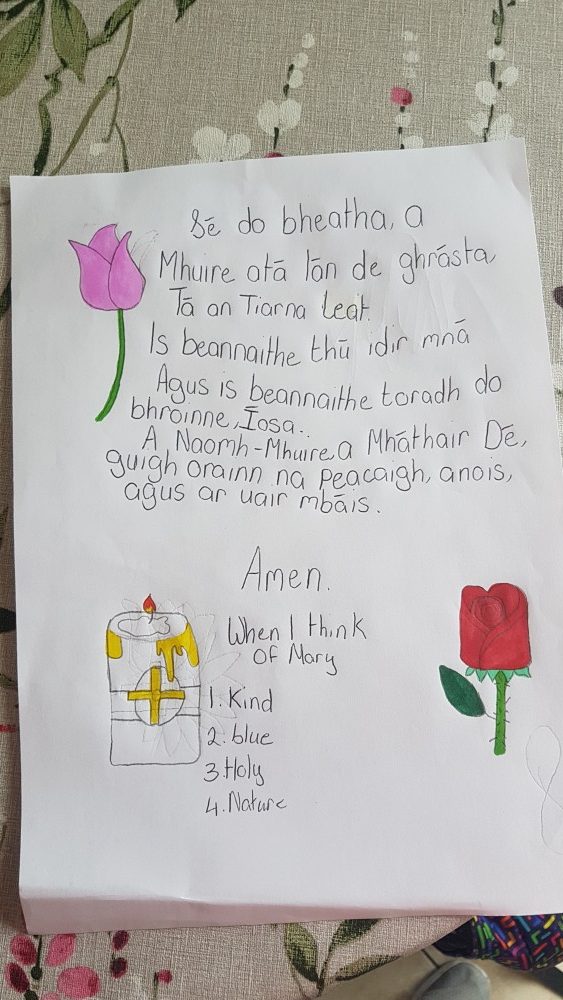 Sē do bheatha, a
Mhuire atā lān de ghrāsta,
Tā an Tiarna leat.
Is beannaithe thū idir mnā
Agus is beannaithe toradh do
bhroinne, Īosa.
A Naomh-Mhuire, a Mhāthair Dē,
guigh orainn na peacaigh, anois,
agus ar uair mbāis.
Amen.
When I think
of Mary
1. Kind
2. blue
3. Holy
4. Nature